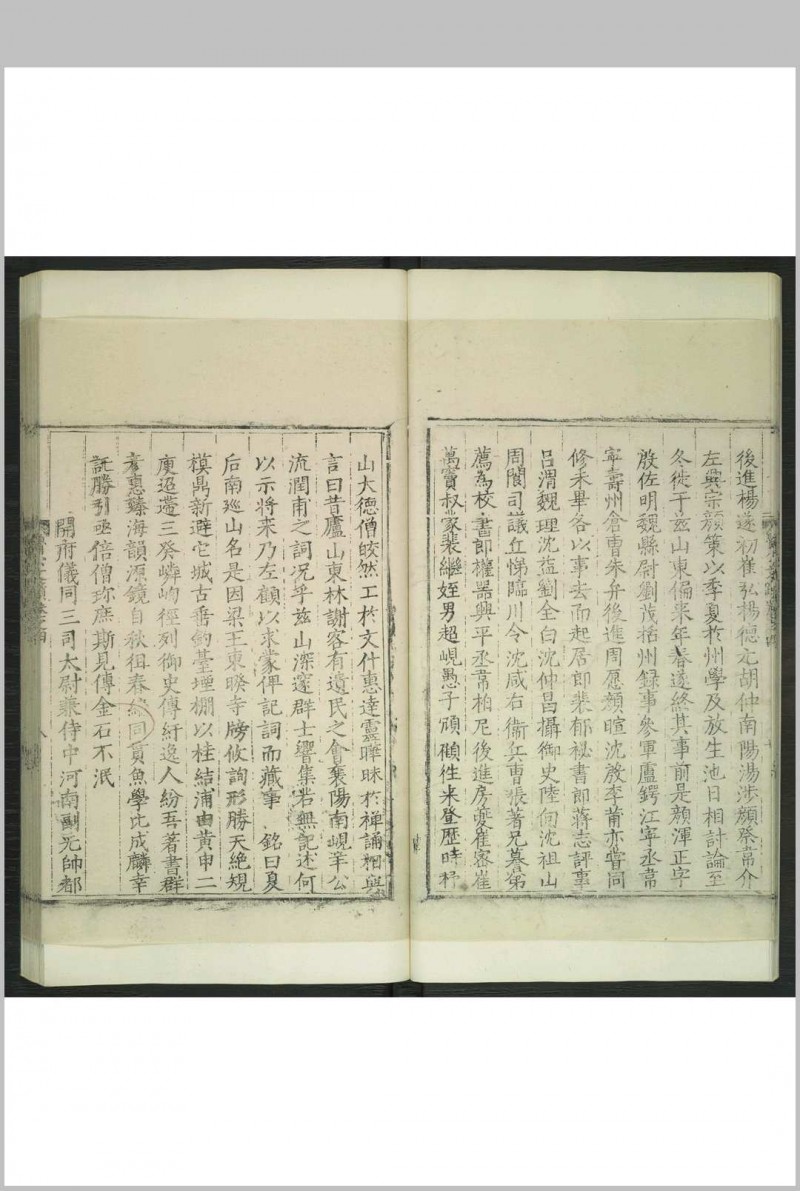 後進楊遂初崔弘楊德元胡仲南陽湯涉顏祭韋介
左興宗顏策以季夏於州學及放生池日相討論至
冬徙于兹山東偏來年春遂終其事前是顏渾正字
殷佐明魏縣尉劉茂括州録事叅軍盧鍔江寧丞韋
寧壽州倉曹朱弁後進周愿顏暄沈殷李莆亦嘗同
修未畢各以事去而起居郎裴郁祕書郎蔣志評事
吕渭魏理沈益劉全白沈仲昌攝御史陸向沈祖山
周閬司議丘悌臨川令沈咸右衞兵曹張著兄謩弟
薦爲校書郎權器興平丞韋柏尼後進房夔崔密崔
萬竇叔蒙裴繼姪男超峴愚子頍顧徃来登歴時杼
山大德僧皎然工於文什惠達靈曄昧於禪誦相與
言曰昔廬山東林謝客有遺民之會襄陽南峴羊公
流潤甫之詞况乎兹山深邃群士響集若無記述何
以示將来乃左顧以求蒙俾記詞而藏事 銘曰夏
后南廵山名是因梁王東暌寺牓攸詢形勝天絶規
模鼎新避它城古垂釣臺堙棚以桂結浦由黄申二
庚迢遰三癸嶙峋徑列御史傳紆逸人紛吾著書群
彥惠臻海韻源鏡自秋徂春終同貫魚學比成麟幸
託勝引亟倍僧珎庶斯見傳金石不泯
開府儀同三司太尉兼侍中河南副元帥都